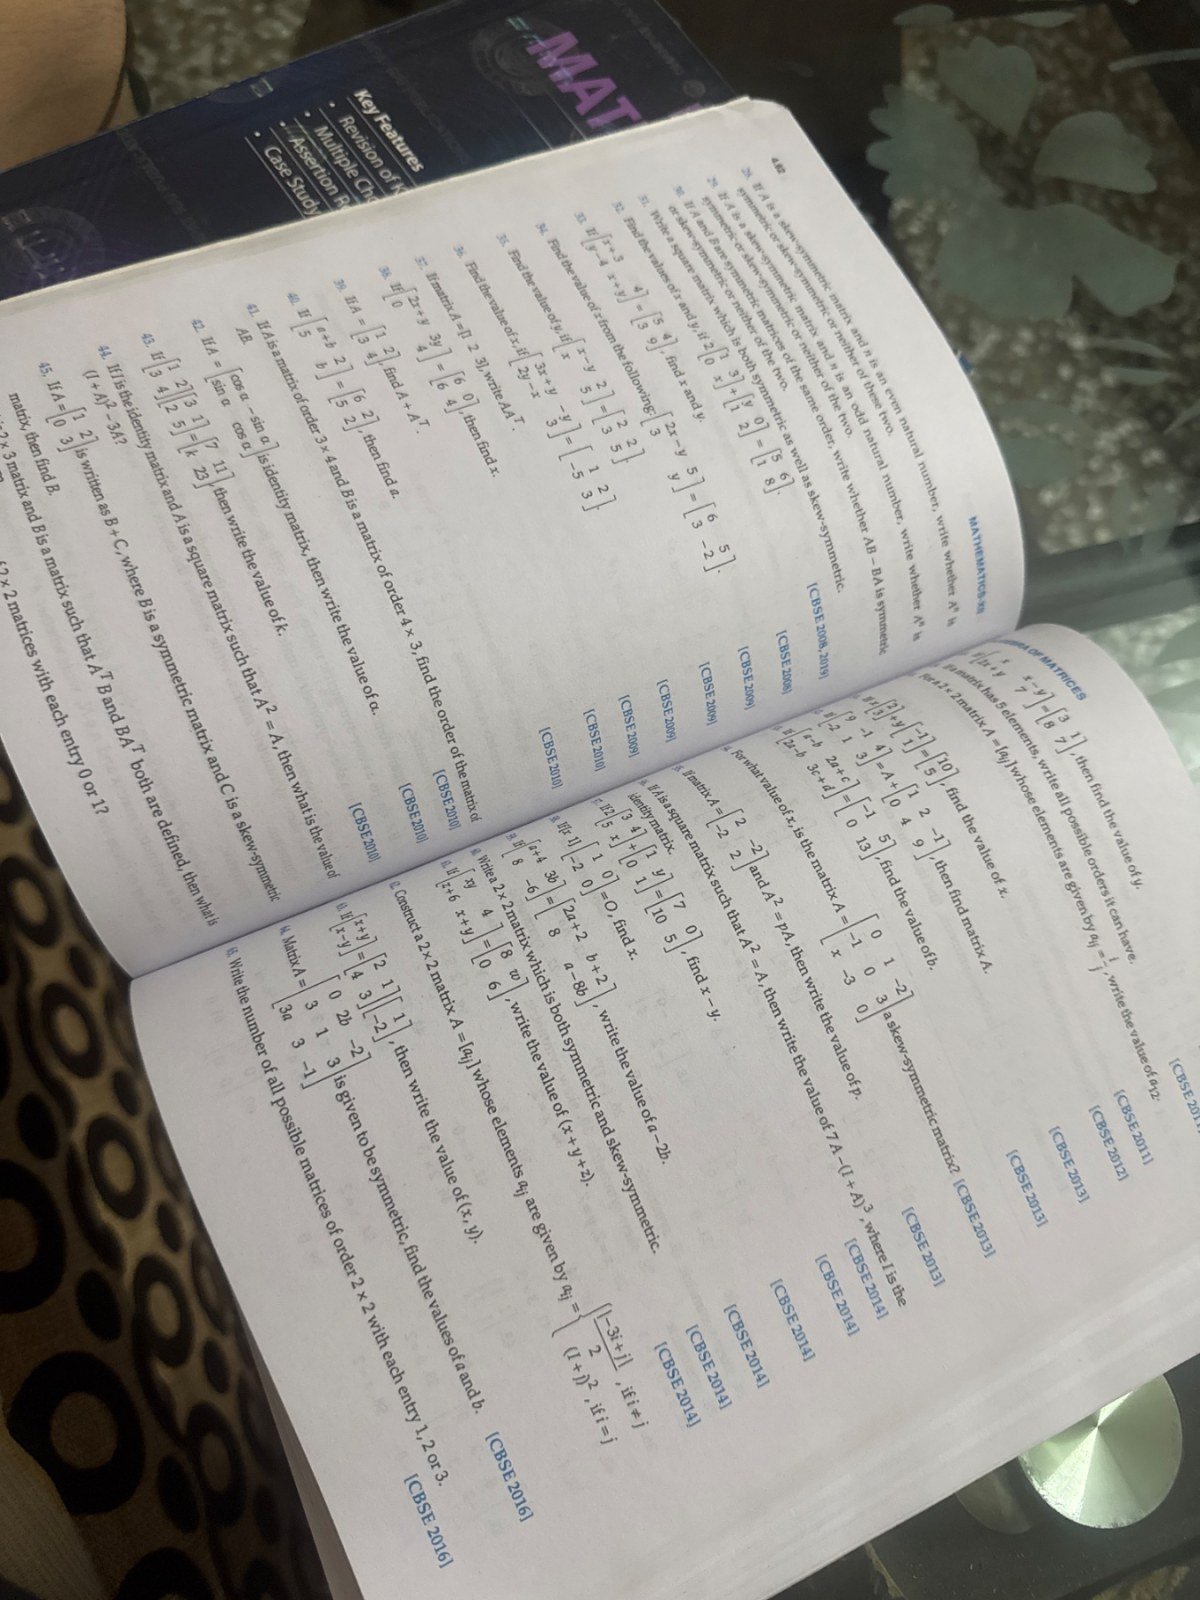 MAT
Key Features
Revision of K
Multiple Cho
Assertion R
Case Study
4.62
MATHEMATICS-XII
28. If A is a skew-symmetric matrix and n is an even natural number, write whether Aⁿ is
symmetric or skew-symmetric or neither of these two.
29. If A is a skew-symmetric matrix and n is an odd natural number, write whether Aⁿ is
symmetric or skew-symmetric or neither of the two.
30. If A and B are symmetric matrices of the same order, write whether AB – BA is symmetric
or skew-symmetric or neither of the two.
31. Write a square matrix which is both symmetric as well as skew-symmetric.
32. Find the values of x and y, if 2[1 3; 0 x] + [y 0; 1 2] = [5 6; 1 8]. [CBSE 2008, 2019]
33. If [x+3 4; y–4 x+y] = [5 4; 3 9], find x and y. [CBSE 2008]
34. Find the value of x from the following: [2x–y 5; 3 y] = [6 5; 3 –2]. [CBSE 2009]
35. Find the value of y, if [x–y 2; x 5] = [2 2; 3 5]. [CBSE 2009]
36. Find the value of x, if [3x+y –y; 2y–x 3] = [1 2; –5 3]. [CBSE 2009]
37. If matrix A = [1 2 3], write AAᵀ. [CBSE 2009]
38. If [2x+y 3y; 0 4] = [6 0; 6 4], then find x. [CBSE 2010]
39. If A = [1 2; 3 4], find A + Aᵀ. [CBSE 2010]
40. If [a+b 2; 5 b] = [6 2; 5 2], then find a.
41. If A is a matrix of order 3 × 4 and B is a matrix of order 4 × 3, find the order of the matrix of
AB. [CBSE 2010]
42. If A = [cos α –sin α; sin α cos α] is identity matrix, then write the value of α. [CBSE 2010]
43. If [1 2; 3 4][3 1; 2 5] = [7 11; k 23], then write the value of k. [CBSE 2010]
44. If I is the identity matrix and A is a square matrix such that A² = A, then what is the value of
(I + A)² – 3A?
45. If A = [1 2; 0 3] is written as B + C, where B is a symmetric matrix and C is a skew-symmetric
matrix, then find B.
2 × 3 matrix and B is a matrix such that Aᵀ B and BAᵀ both are defined, then what is
2 × 2 matrices with each entry 0 or 1?
OF MATRICES
[x x–y; 2x+y 7] = [3 1; 8 7], then find the value of y.
If a matrix has 5 elements, write all possible orders it can have. [CBSE 2011]
For a 2 × 2 matrix, A = [aᵢⱼ] whose elements are given by aᵢⱼ = i/j, write the value of a₁₂. [CBSE 2011]
If x[2; 3] + y[–1; 1] = [10; 5], find the value of x. [CBSE 2012]
If [9 –1 4; –2 1 3] = A + [1 2 –1; 0 4 9], then find matrix A. [CBSE 2013]
If [a–b 2a+c; 2a–b 3c+d] = [–1 5; 0 13], find the value of b. [CBSE 2013]
For what value of x, is the matrix A = [0 1 –2; –1 0 3; x –3 0] a skew-symmetric matrix? [CBSE 2013]
If matrix A = [2 –2; –2 2] and A² = pA, then write the value of p. [CBSE 2013]
If A is a square matrix such that A² = A, then write the value of 7A – (I + A)³, where I is the
identity matrix. [CBSE 2014]
If 2[3 4; 5 x] + [1 y; 0 1] = [7 0; 10 5], find x – y. [CBSE 2014]
If [x 1][1 0; –2 0] = O, find x. [CBSE 2014]
If [a+4 3b; 8 –6] = [2a+2 b+2; 8 a–8b], write the value of a – 2b. [CBSE 2014]
Write a 2 × 2 matrix which is both symmetric and skew-symmetric. [CBSE 2014]
If [xy 4; z+6 x+y] = [8 w; 0 6], write the value of (x + y + z). [CBSE 2014]
Construct a 2 × 2 matrix A = [aᵢⱼ] whose elements aᵢⱼ are given by aᵢⱼ = { |–3i+j|/2, if i ≠ j; (I + j)², if i = j
If [x+y; x–y] = [2 1; 4 3][1; –2], then write the value of (x, y).
64. Matrix A = [0 2b –2; 3 1 3; 3a 3 –1] is given to be symmetric, find the values of a and b. [CBSE 2016]
65. Write the number of all possible matrices of order 2 × 2 with each entry 1, 2 or 3. [CBSE 2016]